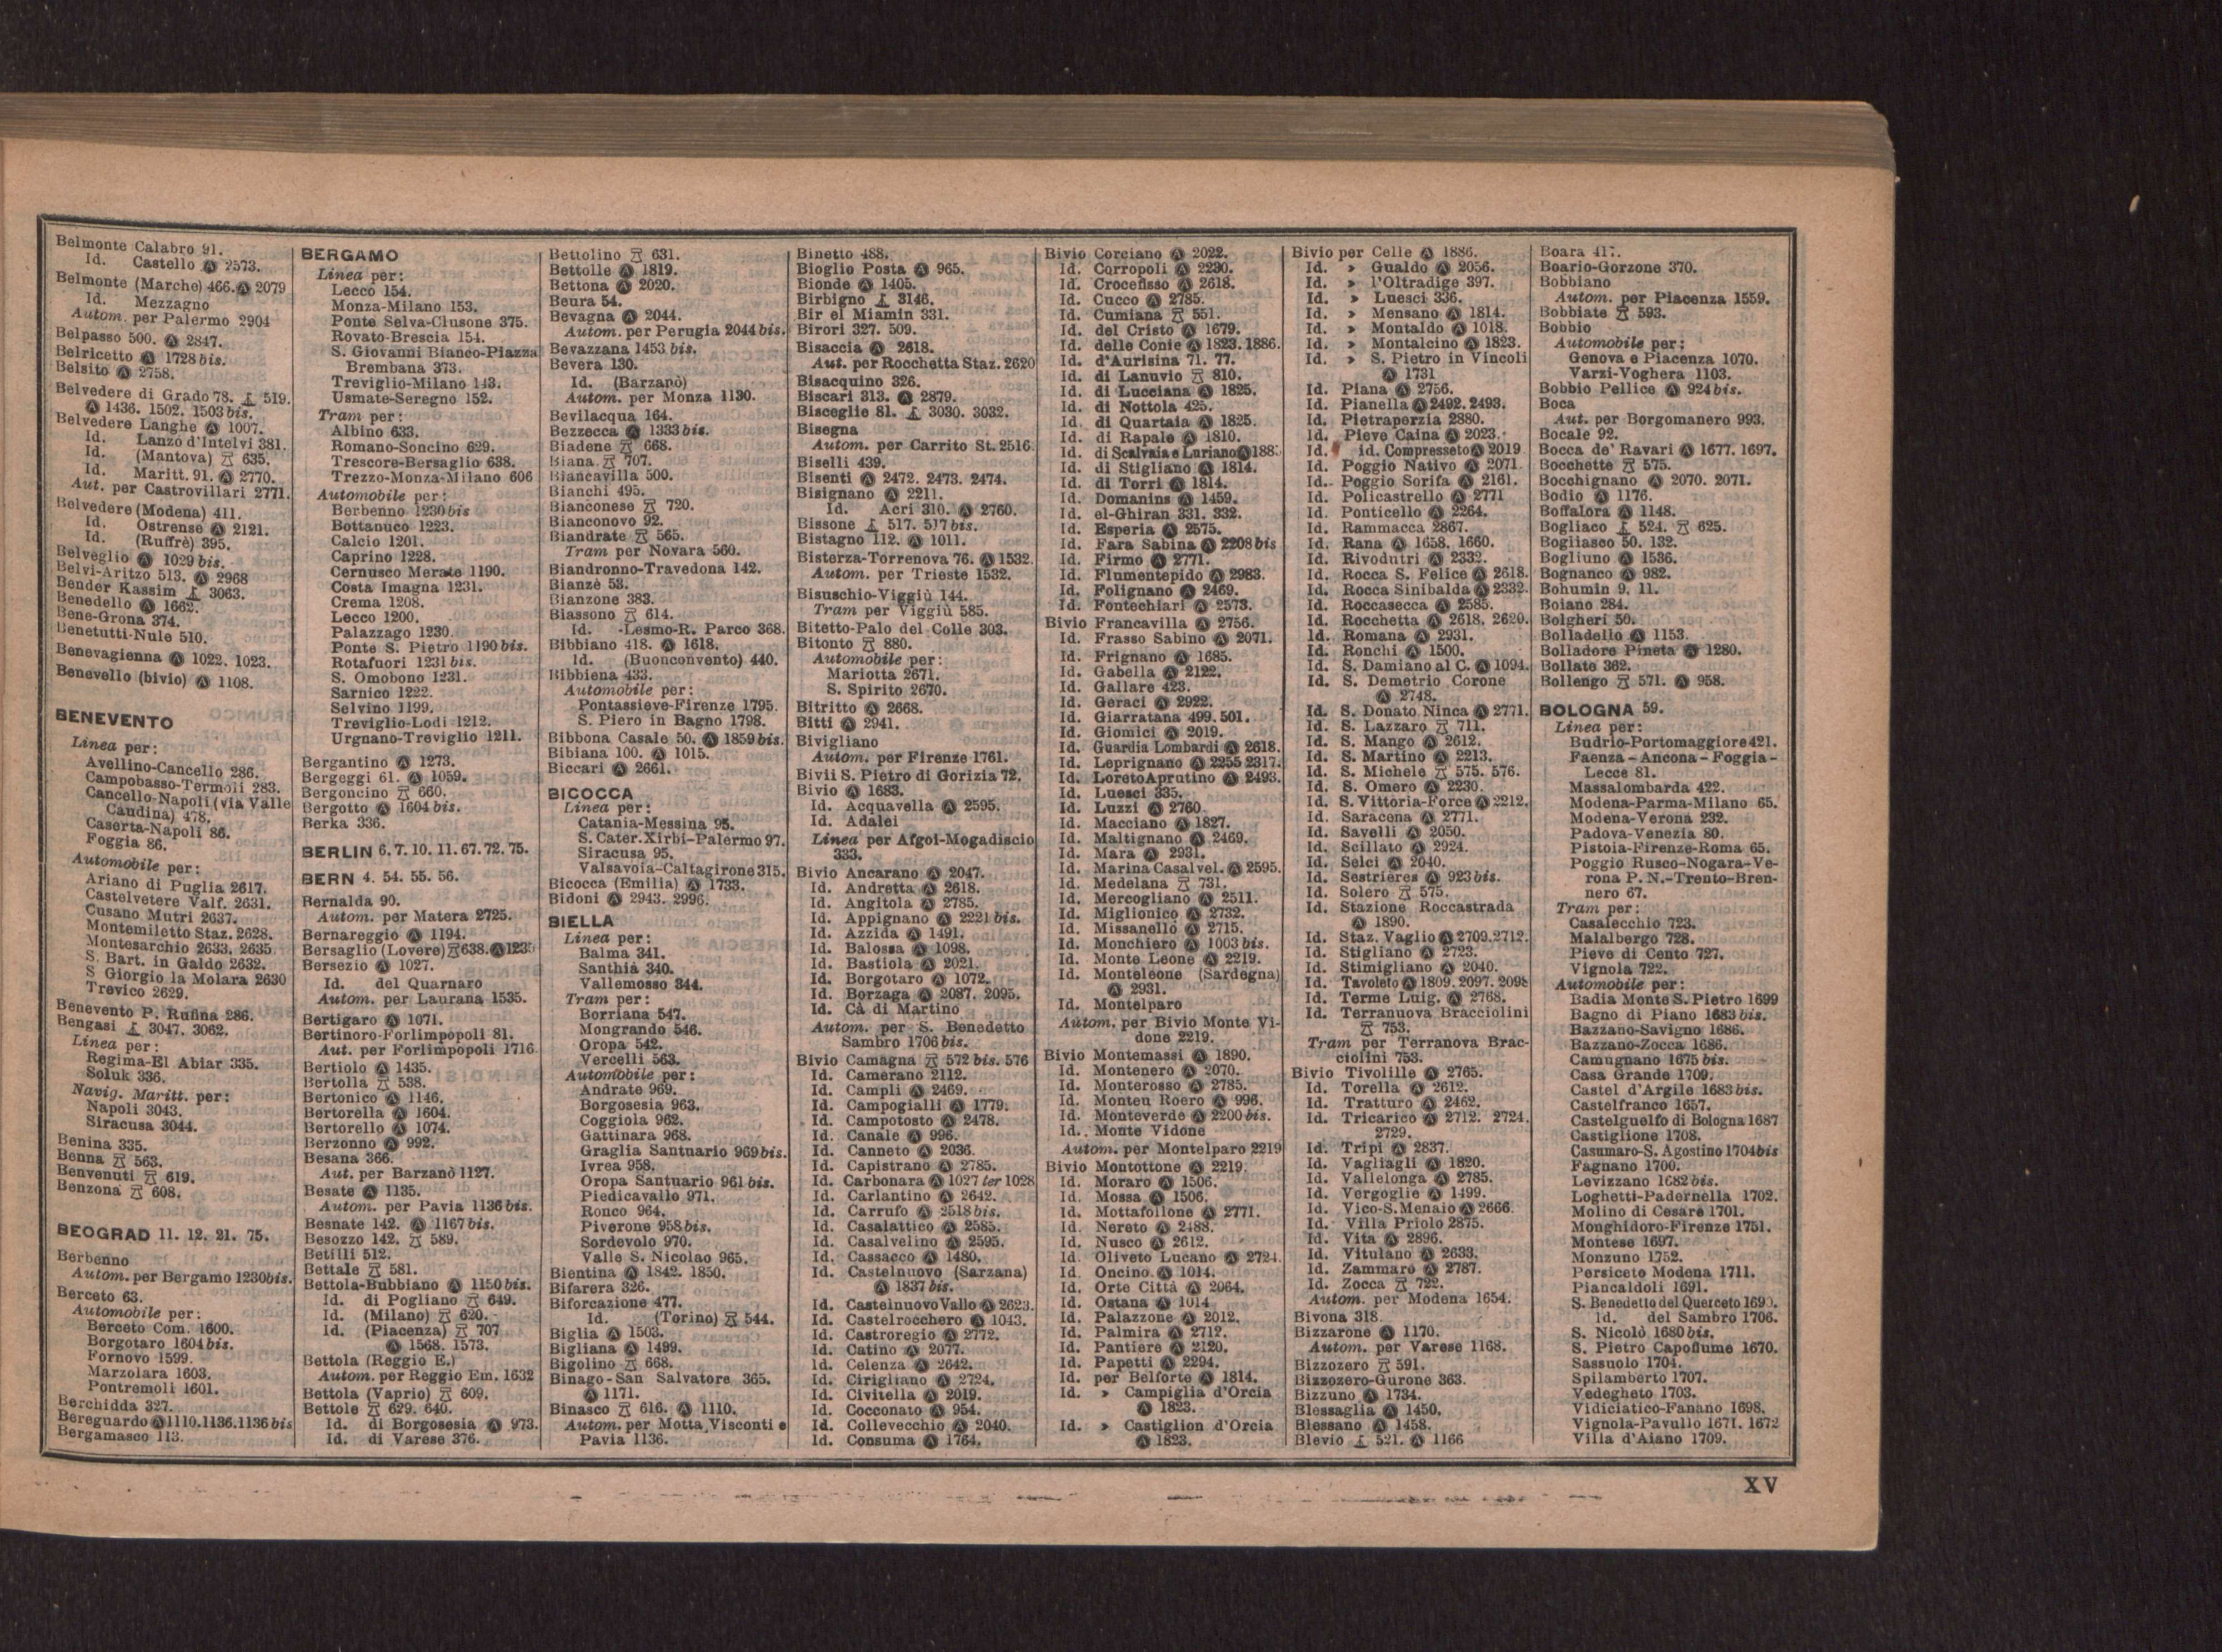 Belmonte Calabro 91.
Id. Castello Ⓐ 2573.
Belmonte (Marche) 466. Ⓐ 2079
Id. Mezzagno
Autom. per Palermo 2904
Belpasso 500. Ⓐ 2847.
Belricetto Ⓐ 1728 bis.
Belsito Ⓐ 2758.
Belvedere di Grado 78. 519.
Ⓐ 1436. 1502. 1503 bis.
Belvedere Langhe Ⓐ 1007.
Id. Lanzo d'Intelvi 381.
Id. (Mantova) 635.
Id. Maritt. 91. Ⓐ 2770.
Aut. per Castrovillari 2771.
Belvedere (Modena) 411.
Id. Ostrense Ⓐ 2121.
Id. (Ruffrè) 395.
Belveglio Ⓐ 1029 bis.
Belvi-Aritzo 513. Ⓐ 2968
Bender Kassim 3063.
Benedello Ⓐ 1662.
Bene-Grona 374.
Benetutti-Nule 510.
Benevagienna Ⓐ 1022. 1023.
Benevello (bivio) Ⓐ 1108.
BENEVENTO
Linea per:
Avellino-Cancello 286.
Campobasso-Termoli 283.
Cancello-Napoli (via Valle
Caudina) 478.
Caserta-Napoli 86.
Foggia 86.
Automobile per:
Ariano di Puglia 2617.
Castelvetere Valf. 2631.
Cusano Mutri 2637.
Montemiletto Staz. 2628.
Montesarchio 2633. 2635
S. Bart. in Galdo 2632.
S Giorgio la Molara 2630
Trevico 2629.
Benevento P. Rufina 286.
Bengasi 3047. 3062.
Linea per:
Regima-El Abiar 335.
Soluk 336.
Navig. Maritt. per:
Napoli 3043.
Siracusa 3044.
Benina 335.
Benna 563.
Benvenuti 619.
Benzona 608.
BEOGRAD 11. 12. 21. 75.
Berbenno
Autom. per Bergamo 1230bis.
Berceto 63.
Automobile per:
Berceto Com. 1600.
Borgotaro 1604 bis.
Fornovo 1599.
Marzolara 1603.
Pontremoli 1601.
Berchidda 327.
Bereguardo Ⓐ 1110.1136.1136 bis
Bergamasco 113.
BERGAMO
Linea per:
Lecco 154.
Monza-Milano 153.
Ponte Selva-Clusone 375.
Rovato-Brescia 154.
S. Giovanni Bianco-Piazza
Brembana 373.
Treviglio-Milano 143.
Usmate-Seregno 152.
Tram per:
Albino 633.
Romano-Soncino 629.
Trescore-Bersaglio 638.
Trezzo-Monza-Milano 606
Automobile per:
Berbenno 1230 bis
Bottanuco 1223.
Calcio 1201.
Caprino 1228.
Cernusco Merate 1190.
Costa Imagna 1231.
Crema 1208.
Lecco 1200.
Palazzago 1230.
Ponte S. Pietro 1190 bis.
Rotafuori 1231 bis.
S. Omobono 1231.
Sarnico 1222.
Selvino 1199.
Treviglio-Lodi 1212.
Urgnano-Treviglio 1211.
Bergantino Ⓐ 1273.
Bergeggi 61. Ⓐ 1059.
Bergoncino 660.
Bergotto Ⓐ 1604 bis.
Berka 336.
BERLIN 6. 7. 10. 11. 67. 72. 75.
BERN 4. 54. 55. 56.
Bernalda 90.
Autom. per Matera 2725.
Bernareggio Ⓐ 1194.
Bersaglio (Lovere) 638. Ⓐ
Bersezio Ⓐ 1027.
Id. del Quarnaro
Autom. per Laurana 1535.
Bertigaro Ⓐ 1071.
Bertinoro-Forlimpopoli 81.
Aut. per Forlimpopoli 1716
Bertiolo Ⓐ 1435.
Bertolla 538.
Bertonico Ⓐ 1146.
Bertorella Ⓐ 1604.
Bertorello Ⓐ 1074.
Berzonno Ⓐ 992.
Besana 366.
Aut. per Barzanò 1127.
Besate Ⓐ 1135.
Autom. per Pavia 1136 bis.
Besnate 142. Ⓐ 1167 bis.
Besozzo 142. 589.
Betilli 512.
Bettale 581.
Bettola-Bubbiano Ⓐ 1150 bis.
Id. di Pogliano 649.
Id. (Milano) 620.
Id. (Piacenza) 707
Ⓐ 1568. 1573.
Bettola (Reggio E.)
Autom. per Reggio Em. 1632
Bettola (Vaprio) 609.
Bettole 629. 640.
Id. di Borgosesia Ⓐ 973.
Id. di Varese 376.
Bettolino 631.
Bettolle Ⓐ 1819.
Bettona Ⓐ 2020.
Beura 54.
Bevagna Ⓐ 2044.
Autom. per Perugia 2044 bis.
Bevazzana 1453 bis.
Bevera 130.
Id. (Barzanò)
Autom. per Monza 1130.
Bevilacqua 164.
Bezzecca Ⓐ 1333 bis.
Biadene 668.
Biana 707.
Biancavilla 500.
Bianchi 495.
Bianconese 720.
Bianconovo 92.
Biandrate 565.
Tram per Novara 560.
Biandronno-Travedona 142.
Bianzè 53.
Bianzone 383.
Biassono 614.
Id. -Lesmo-R. Parco 368.
Bibbiano 418. Ⓐ 1618.
Id. (Buonconvento) 440.
Bibbiena 433.
Automobile per:
Pontassieve-Firenze 1795.
S. Piero in Bagno 1798.
Bibbona Casale 50. Ⓐ 1859 bis.
Bibiana 100. Ⓐ 1015.
Biccari Ⓐ 2661.
BICOCCA
Linea per:
Catania-Messina 95.
S. Cater. Xirbi-Palermo 97.
Siracusa 95.
Valsavoia-Caltagirone 315.
Bicocca (Emilia) Ⓐ 1733.
Bidoni Ⓐ 2943. 2996.
BIELLA
Linea per:
Balma 341.
Santhià 340.
Vallemosso 344.
Tram per:
Borriana 547.
Mongrando 546.
Oropa 542.
Vercelli 563.
Automobile per:
Andrate 969.
Borgosesia 963.
Coggiola 962.
Gattinara 968.
Graglia Santuario 969 bis.
Ivrea 958.
Oropa Santuario 961 bis.
Piedicavallo 971.
Ronco 964.
Piverone 958 bis.
Sordevolo 970.
Valle S. Nicolao 965.
Bientina Ⓐ 1842. 1850.
Bifarera 326.
Biforcazione 477.
Id. (Torino) 544.
Biglia Ⓐ 1503.
Bigliana Ⓐ 1499.
Bigolino 668.
Binago-San Salvatore 365.
Ⓐ 1171.
Binasco 616. Ⓐ 1110.
Autom. per Motta Visconti e
Pavia 1136.
Binetto 488.
Bioglio Posta Ⓐ 965.
Bionde Ⓐ 1405.
Birbigno 3146.
Bir el Miamin 331.
Birori 327. 509.
Bisaccia Ⓐ 2618.
Aut. per Rocchetta Staz. 2620
Bisacquino 326.
Biscari 313. Ⓐ 2879.
Bisceglie 81. 3030. 3032.
Bisegna
Autom. per Carrito St. 2516
Biselli 439.
Bisenti Ⓐ 2472. 2473. 2474.
Bisignano Ⓐ 2211.
Id. Acri 310. Ⓐ 2760.
Bissone 517. 517 bis.
Bistagno 112. Ⓐ 1011.
Bisterza-Torrenova 76. Ⓐ 1532.
Autom. per Trieste 1532.
Bisuschio-Viggiù 144.
Tram per Viggiù 585.
Bitetto-Palo del Colle 303.
Bitonto 880.
Automobile per:
Mariotta 2671.
S. Spirito 2670.
Bitritto Ⓐ 2668.
Bitti Ⓐ 2941.
Bivigliano
Autom. per Firenze 1761.
Bivii S. Pietro di Gorizia 72.
Bivio Ⓐ 1683.
Id. Acquavella Ⓐ 2595.
Id. Adalei
Linea per Afgoi-Mogadiscio
333.
Bivio Ancarano Ⓐ 2047.
Id. Andretta Ⓐ 2618.
Id. Angitola Ⓐ 2785.
Id. Appignano Ⓐ 2221 bis.
Id. Azzida Ⓐ 1491.
Id. Balossa Ⓐ 1098.
Id. Bastiola Ⓐ 2021.
Id. Borgotaro Ⓐ 1072.
Id. Borzaga Ⓐ 2087. 2095.
Id. Cà di Martino
Autom. per S. Benedetto
Sambro 1706 bis.
Bivio Camagna 572 bis. 576
Id. Camerano 2112.
Id. Campli Ⓐ 2469.
Id. Campogialli Ⓐ 1779.
Id. Campotosto Ⓐ 2478.
Id. Canale Ⓐ 996.
Id. Canneto Ⓐ 2036.
Id. Capistrano Ⓐ 2785.
Id. Carbonara Ⓐ 1027 ter 1028
Id. Carlantino Ⓐ 2642.
Id. Carrufo Ⓐ 2518 bis.
Id. Casalattico Ⓐ 2585.
Id. Casalvelino Ⓐ 2595.
Id. Cassacco Ⓐ 1480.
Id. Castelnuovo (Sarzana)
Ⓐ 1837 bis.
Id. Castelnuovo Vallo Ⓐ 2623.
Id. Castelrocchero Ⓐ 1043.
Id. Castroregio Ⓐ 2772.
Id. Catino Ⓐ 2077.
Id. Celenza Ⓐ 2642.
Id. Cirigliano Ⓐ 2724.
Id. Civitella Ⓐ 2019.
Id. Cocconato Ⓐ 954.
Id. Collevecchio Ⓐ 2040.
Id. Consuma Ⓐ 1764.
Bivio Corciano Ⓐ 2022.
Id. Corropoli Ⓐ 2230.
Id. Crocefisso Ⓐ 2618.
Id. Cucco Ⓐ 2785.
Id. Cumiana 551.
Id. del Cristo Ⓐ 1679.
Id. delle Conie Ⓐ 1823. 1886.
Id. d'Aurisina 71. 77.
Id. di Lanuvio 810.
Id. di Lucciana Ⓐ 1825.
Id. di Nottola 425.
Id. di Quartaia Ⓐ 1825.
Id. di Rapale Ⓐ 1810.
Id. di Scalvaia e Luriano Ⓐ
Id. di Stigliano Ⓐ 1814.
Id. di Torri Ⓐ 1814.
Id. Domanins Ⓐ 1459.
Id. el-Ghiran 331. 332.
Id. Esperia Ⓐ 2575.
Id. Fara Sabina Ⓐ 2208 bis
Id. Firmo Ⓐ 2771.
Id. Flumentepido Ⓐ 2983.
Id. Folignano Ⓐ 2469.
Id. Fontechiari Ⓐ 2573.
Bivio Francavilla Ⓐ 2756.
Id. Frasso Sabino Ⓐ 2071.
Id. Frignano Ⓐ 1685.
Id. Gabella Ⓐ 2122.
Id. Gallare 423.
Id. Geraci Ⓐ 2922.
Id. Giarratana 499. 501.
Id. Giomici Ⓐ 2019.
Id. Guardia Lombardi Ⓐ 2618.
Id. Leprignano Ⓐ 2255 2317.
Id. Loreto Aprutino Ⓐ 2493.
Id. Luesci 335.
Id. Luzzi Ⓐ 2760.
Id. Macciano Ⓐ 1827.
Id. Maltignano Ⓐ 2469.
Id. Mara Ⓐ 2931.
Id. Marina Casalvel. Ⓐ 2595.
Id. Medelana 731.
Id. Mercogliano Ⓐ 2511.
Id. Miglionico Ⓐ 2732.
Id. Missanello Ⓐ 2715.
Id. Monchiero Ⓐ 1003 bis.
Id. Monte Leone Ⓐ 2219.
Id. Monteleone (Sardegna)
Ⓐ 2931.
Id. Montelparo
Autom. per Bivio Monte Vi-
done 2219.
Bivio Montemassi Ⓐ 1890.
Id. Montenero Ⓐ 2070.
Id. Monterosso Ⓐ 2785.
Id. Monteu Roero Ⓐ 996.
Id. Monteverde Ⓐ 2200 bis.
Id. Monte Vidone
Autom. per Montelparo 2219
Bivio Montottone Ⓐ 2219.
Id. Moraro Ⓐ 1506.
Id. Mossa Ⓐ 1506.
Id. Mottafollone Ⓐ 2771.
Id. Nereto Ⓐ 2488.
Id. Nusco Ⓐ 2612.
Id. Oliveto Lucano Ⓐ 2724.
Id. Oncino Ⓐ 1014.
Id. Orte Città Ⓐ 2064.
Id. Ostana Ⓐ 1014
Id. Palazzone Ⓐ 2012.
Id. Palmira Ⓐ 2712.
Id. Pantiere Ⓐ 2120.
Id. Papetti Ⓐ 2294.
Id. per Belforte Ⓐ 1814.
Id. » Campiglia d'Orcia
Ⓐ 1823.
Id. » Castiglion d'Orcia
Ⓐ 1823.
Bivio per Celle Ⓐ 1886.
Id. » Gualdo Ⓐ 2056.
Id. » l'Oltradige 397.
Id. » Luesci 336.
Id. » Mensano Ⓐ 1814.
Id. » Montaldo Ⓐ 1018.
Id. » Montalcino Ⓐ 1823.
Id. » S. Pietro in Vincoli
Ⓐ 1731
Id. Piana Ⓐ 2756.
Id. Pianella Ⓐ 2492. 2493.
Id. Pietraperzia 2880.
Id. Pieve Caina Ⓐ 2023.
Id. id. Compresseto Ⓐ 2019
Id. Poggio Nativo Ⓐ 2071.
Id. Poggio Sorifa Ⓐ 2161.
Id. Policastrello Ⓐ 2771
Id. Ponticello Ⓐ 2264.
Id. Rammacca 2867.
Id. Rana Ⓐ 1658. 1660.
Id. Rivodutri Ⓐ 2332.
Id. Rocca S. Felice Ⓐ 2618.
Id. Rocca Sinibalda Ⓐ 2332.
Id. Roccasecca Ⓐ 2585.
Id. Rocchetta Ⓐ 2618. 2620.
Id. Romana Ⓐ 2931.
Id. Ronchi Ⓐ 1500.
Id. S. Damiano al C. Ⓐ 1094.
Id. S. Demetrio Corone
Ⓐ 2748.
Id. S. Donato Ninca Ⓐ 2771.
Id. S. Lazzaro 711.
Id. S. Mango Ⓐ 2612.
Id. S. Martino Ⓐ 2213.
Id. S. Michele 575. 576.
Id. S. Omero Ⓐ 2230.
Id. S. Vittoria-Force Ⓐ 2212.
Id. Saracena Ⓐ 2771.
Id. Savelli Ⓐ 2050.
Id. Scillato Ⓐ 2924.
Id. Selci Ⓐ 2040.
Id. Sestrieres Ⓐ 923 bis.
Id. Solero 575.
Id. Stazione Roccastrada
Ⓐ 1890.
Id. Staz. Vaglio Ⓐ 2709. 2712.
Id. Stigliano Ⓐ 2723.
Id. Stimigliano Ⓐ 2040.
Id. Tavoleto Ⓐ 1809. 2097. 2098
Id. Terme Luig. Ⓐ 2768.
Id. Terranuova Bracciolini
753.
Tram per Terranova Brac-
ciolini 753.
Bivio Tivolille Ⓐ 2765.
Id. Torella Ⓐ 2612.
Id. Tratturo Ⓐ 2462.
Id. Tricarico Ⓐ 2712. 2724.
2729.
Id. Tripi Ⓐ 2837.
Id. Vagliagli Ⓐ 1820.
Id. Vallelonga Ⓐ 2785.
Id. Vergoglie Ⓐ 1499.
Id. Vico-S. Menaio Ⓐ 2666.
Id. Villa Priolo 2875.
Id. Vita Ⓐ 2896.
Id. Vitulano Ⓐ 2633.
Id. Zammarò Ⓐ 2787.
Id. Zocca 722.
Autom. per Modena 1654.
Bivona 318.
Bizzarone Ⓐ 1170.
Autom. per Varese 1168.
Bizzozero 591.
Bizzozero-Gurone 363.
Bizzuno Ⓐ 1734.
Blessaglia Ⓐ 1450.
Blessano Ⓐ 1458.
Blevio 521. Ⓐ 1166
Boara 417.
Boario-Gorzone 370.
Bobbiano
Autom. per Piacenza 1559.
Bobbiate 593.
Bobbio
Automobile per:
Genova e Piacenza 1070.
Varzi-Voghera 1103.
Bobbio Pellice Ⓐ 924 bis.
Boca
Aut. per Borgomanero 993.
Bocale 92.
Bocca de' Ravari Ⓐ 1677. 1697.
Bocchette 575.
Bocchignano Ⓐ 2070. 2071.
Bodio Ⓐ 1176.
Boffalora Ⓐ 1148.
Bogliaco 524. 625.
Bogliasco 50. 132.
Bogliuno Ⓐ 1536.
Bognanco Ⓐ 982.
Bohumin 9. 11.
Boiano 284.
Bolgheri 50.
Bolladello Ⓐ 1153.
Bolladore Pineta Ⓐ 1280.
Bollate 362.
Bollengo 571. Ⓐ 958.
BOLOGNA 59.
Linea per:
Budrio-Portomaggiore 421.
Faenza-Ancona-Foggia-
Lecce 81.
Massalombarda 422.
Modena-Parma-Milano 65.
Modena-Verona 232.
Padova-Venezia 80.
Pistoia-Firenze-Roma 65.
Poggio Rusco-Nogara-Ve-
rona P. N.-Trento-Bren-
nero 67.
Tram per:
Casalecchio 723.
Malalbergo 728.
Pieve di Cento 727.
Vignola 722.
Automobile per:
Badia Monte S. Pietro 1699
Bagno di Piano 1683 bis.
Bazzano-Savigno 1686.
Bazzano-Zocca 1686.
Camugnano 1675 bis.
Casa Grande 1709.
Castel d'Argile 1683 bis.
Castelfranco 1657.
Castelguelfo di Bologna 1687
Castiglione 1708.
Casumaro-S. Agostino 1704 bis
Fagnano 1700.
Levizzano 1682 bis.
Loghetti-Padernella 1702.
Molino di Cesare 1701.
Monghidoro-Firenze 1751.
Montese 1697.
Monzuno 1752.
Persiceto Modena 1711.
Piancaldoli 1691.
S. Benedetto del Querceto
Id. del Sambro 1706.
S. Nicolò 1680 bis.
S. Pietro Capofiume 1670.
Sassuolo 1704.
Spilamberto 1707.
Vedegheto 1703.
Vidiciatico-Fanano 1698.
Vignola-Pavullo 1671. 1672
Villa d'Aiano 1709.
XV